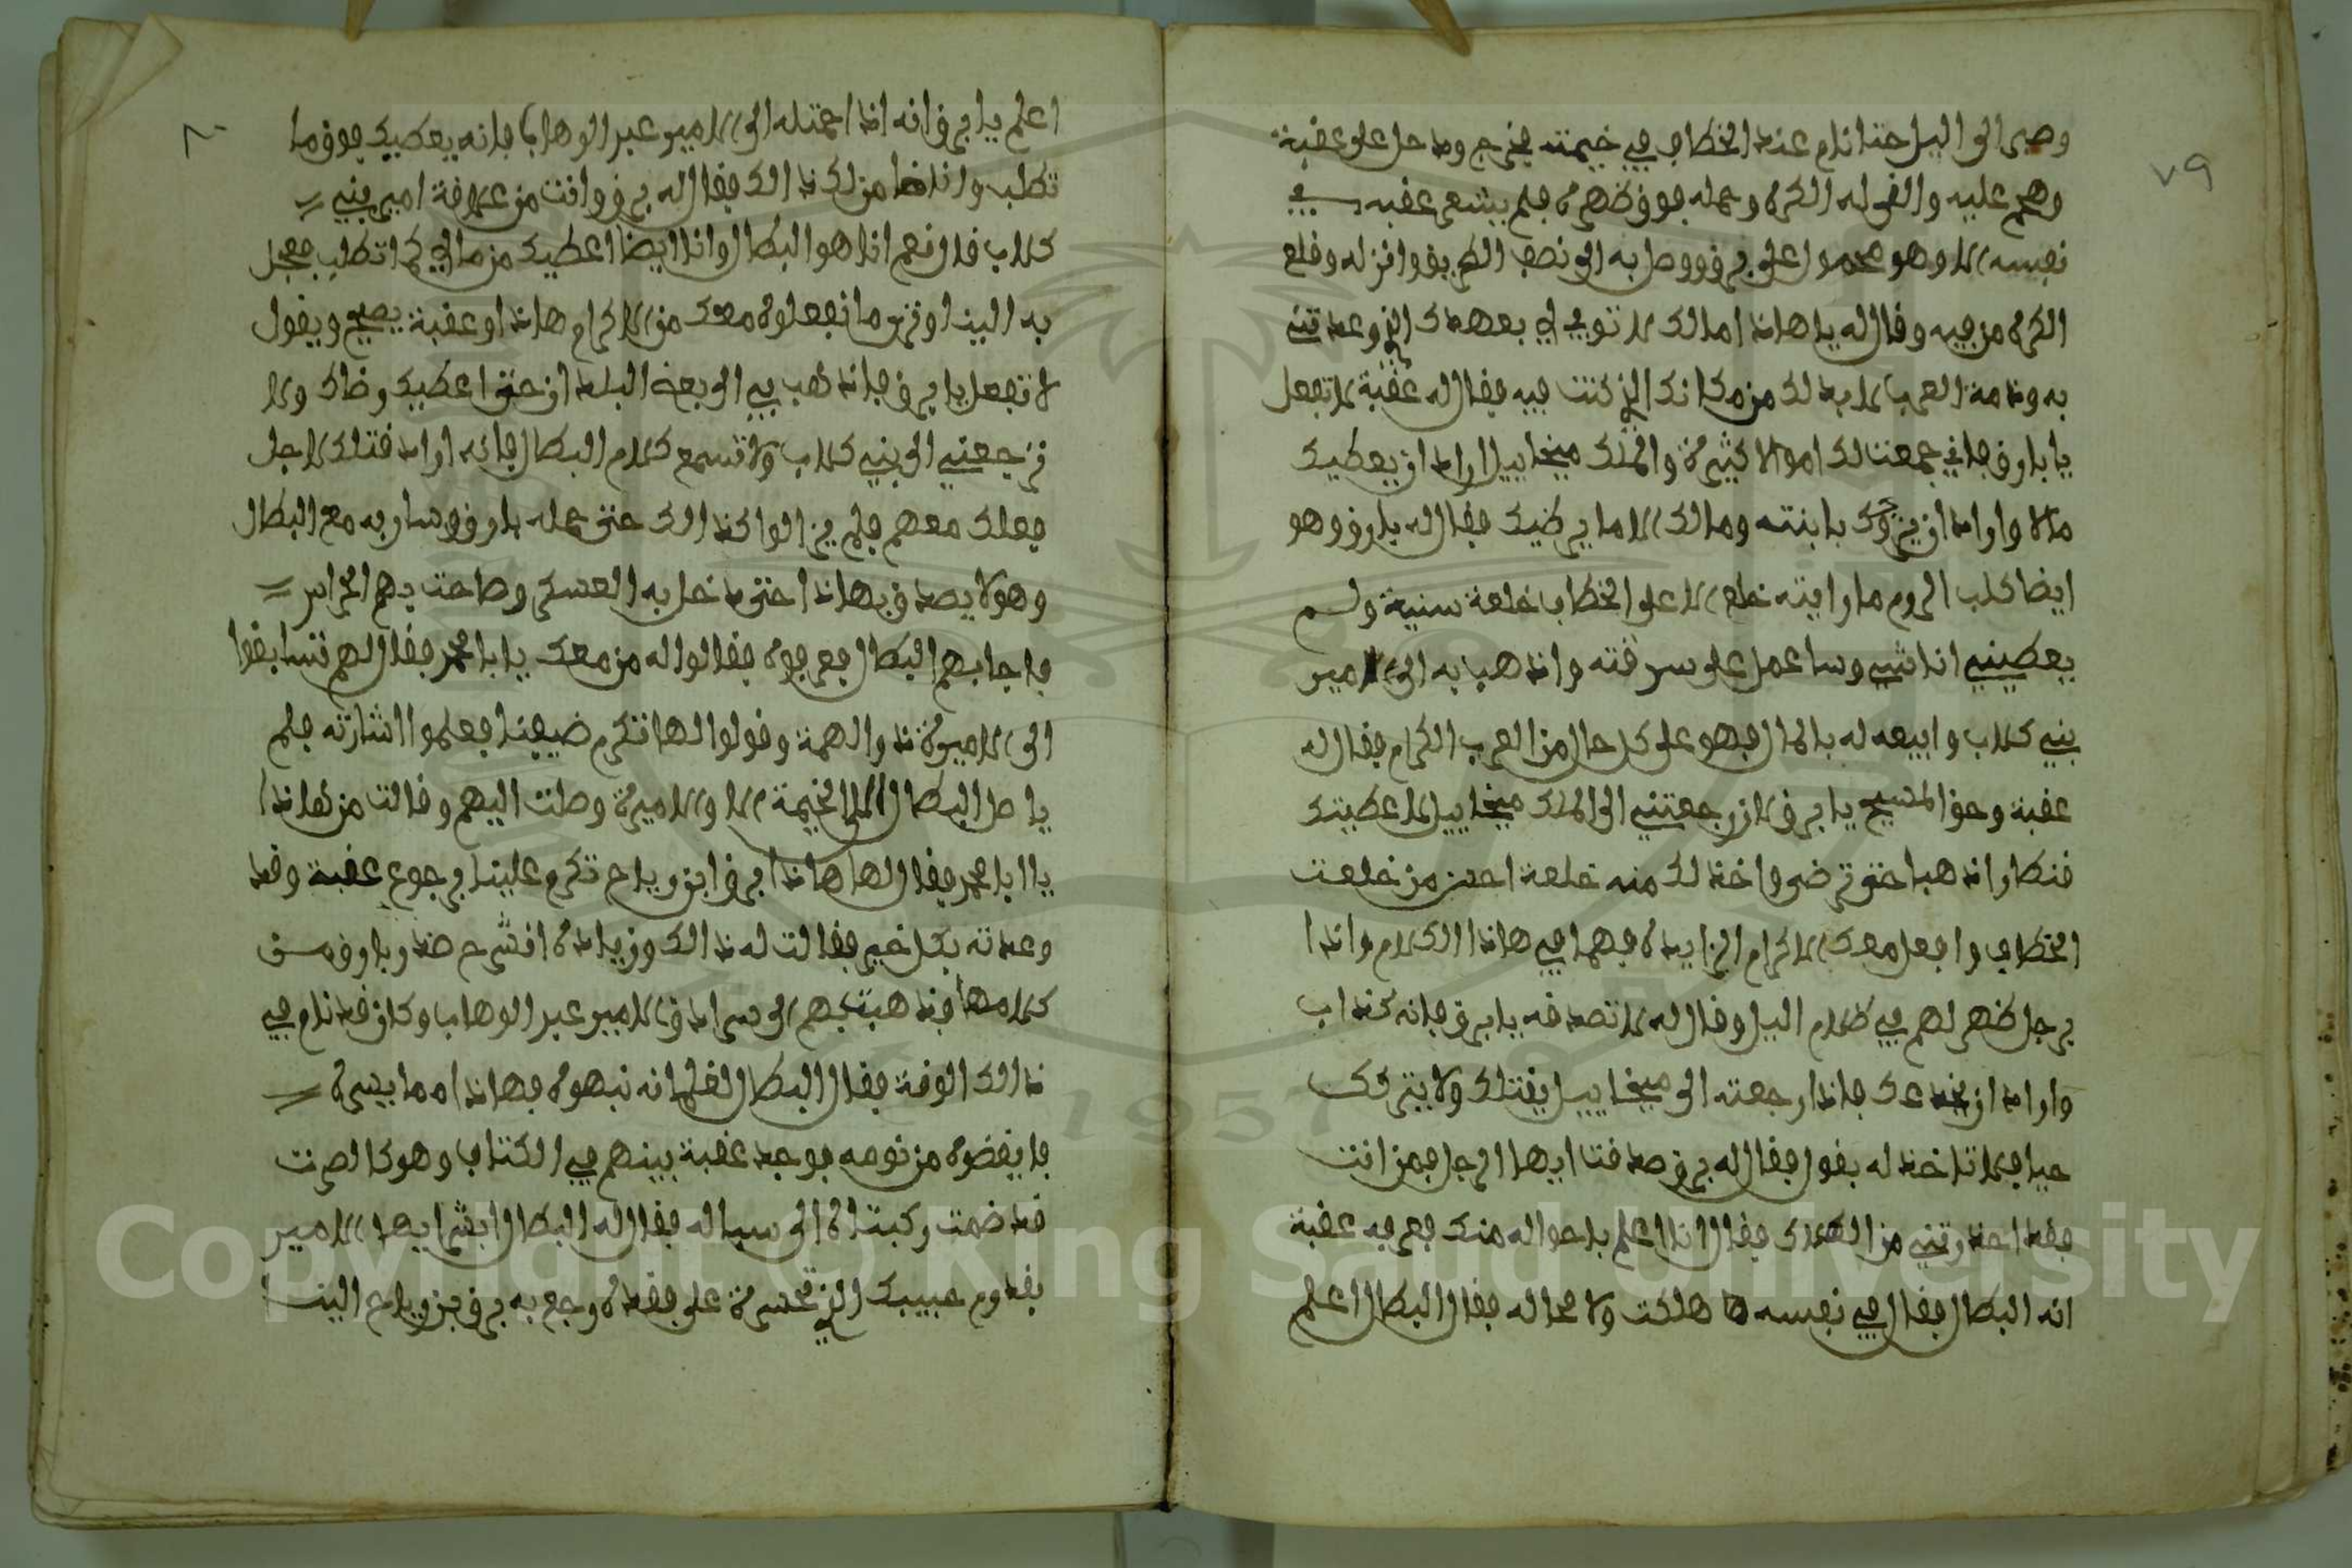 ٧٩
وصبر الى اليل حتا نام عند الخطاف في خيمته فخرج ودخل على عقبة
وهجم عليه والقى له الكرة وحمله فوق ظهره فلم يشعر عقبه في
نفسه الا وهو محمول على برق ووصل به الى نصف الطريق وانزله وقلع
الكرة من فيه وقال له يا هاذا امالك لا توفي لي بعهدك الذي وعدتني
به وذمة العرب لا بد لك من مكانك الذي كنت فيه فقال له عقبة لا تفعل
يا بارق فاني جمعت لك اموالا كثيرة والملك ميخاييل اراد ان يعطيك
مالا واراد ان يزوجك بابنته ومالك الا ما يرضيك فقال له بارق وهو
ايضا كلب الروم ما رايته خلع الا على الخطاف خلعة سنية ولم
يعطيني انا شي وساعمل على سرقته واذهب به الى الامير
بني كلاب وابيعه له بالمال فهو على كل حال من العرب الكرام فقال له
عقبة وحق المسيح يا برق لان رجعتني الى الملك ميخاييل لاعطيتك
قنطار اذهبا حتى ترضى واخذ لك منه خلعة احسن من خلعت
الخطاف وافعل معك الاكرام الزايد فهما في هاذا الكلام واذا
برجل ظهر لهم في ظلام اليل وقال له لا تصدقه يا برق فانه كذاب
واراد ان يخدعك فاذا رجعته الى ميخاييل يقتلك ولا يتركك
حيا فلا تاخذ له بقول فقال له برق صدقت ايها الرجل فمن انت
فقد احذرتني من الهلاك فقال انا اعلم باحواله منك فعرفه عقبة
انه البطال فقال في نفسه ها هلكت ولا محاله فقال البطال اعلم
٨٠
اعلم يا برق انه اذا حمتله الى الامير عبد الوهاب فانه يعطيك فوق ما
تطلب وانا ضامن لك ذالك فقال له برق وانت من علاقة امير بني
كلاب قال نعم انا هو البطال وانا ايضا اعطيك من مالي كما تطلب فعجل
به الينا وترى ما نفعلوه معك من الاكرام هاذا وعقبة يصيح ويقول
لا تفعل يا برق فاذهب بي الى بعض البلدان حتى اعطيك رضاك ولا
ترجعني الى بني كلاب ولا تسمع كلام البطال فانه اراد قتلك لاجل
فعلك معهم فلم يزالوا كذالك حتى حمله بارق وسار به مع البطال
وهو لا يصدق بهاذا حتى دخل به العسكر وصاحت بهم الحراس
فاجابهم البطال فعرفوه فقالوا له من معك يا با محمد فقال لهم تسابقوا
الى الاميرة ذوالهمة وقولوا لها تكرم ضيفنا فعلموا اشارته فلم
ياصل البطال الى الخيمة الا والاميرة وصلت اليهم وقالت من هاذا
يا ابا محمد فقال لها هاذا برق ابن رياح تكرم علينا برجوع عقبة وقد
وعدته بكل خير فقالت له ذالك وزيادة انشرح صدر بارق من
كلامها فذهبت بهم الى سرادق الامير عبد الوهاب وكان قد نام في
ذالك الوقة فقال البطال لغلمانه نبهوه فهاذا مما يسره
فايقضوه من نومه فوجد عقبة بينهم في الكتاف وهو كالميت
قد ضمت ركبتاه الى سباله فقال له البطال ابشر ايها الامير
بقدوم حبيبك الذي تحسرة على فقده ورجع به برق بن رياح الينا